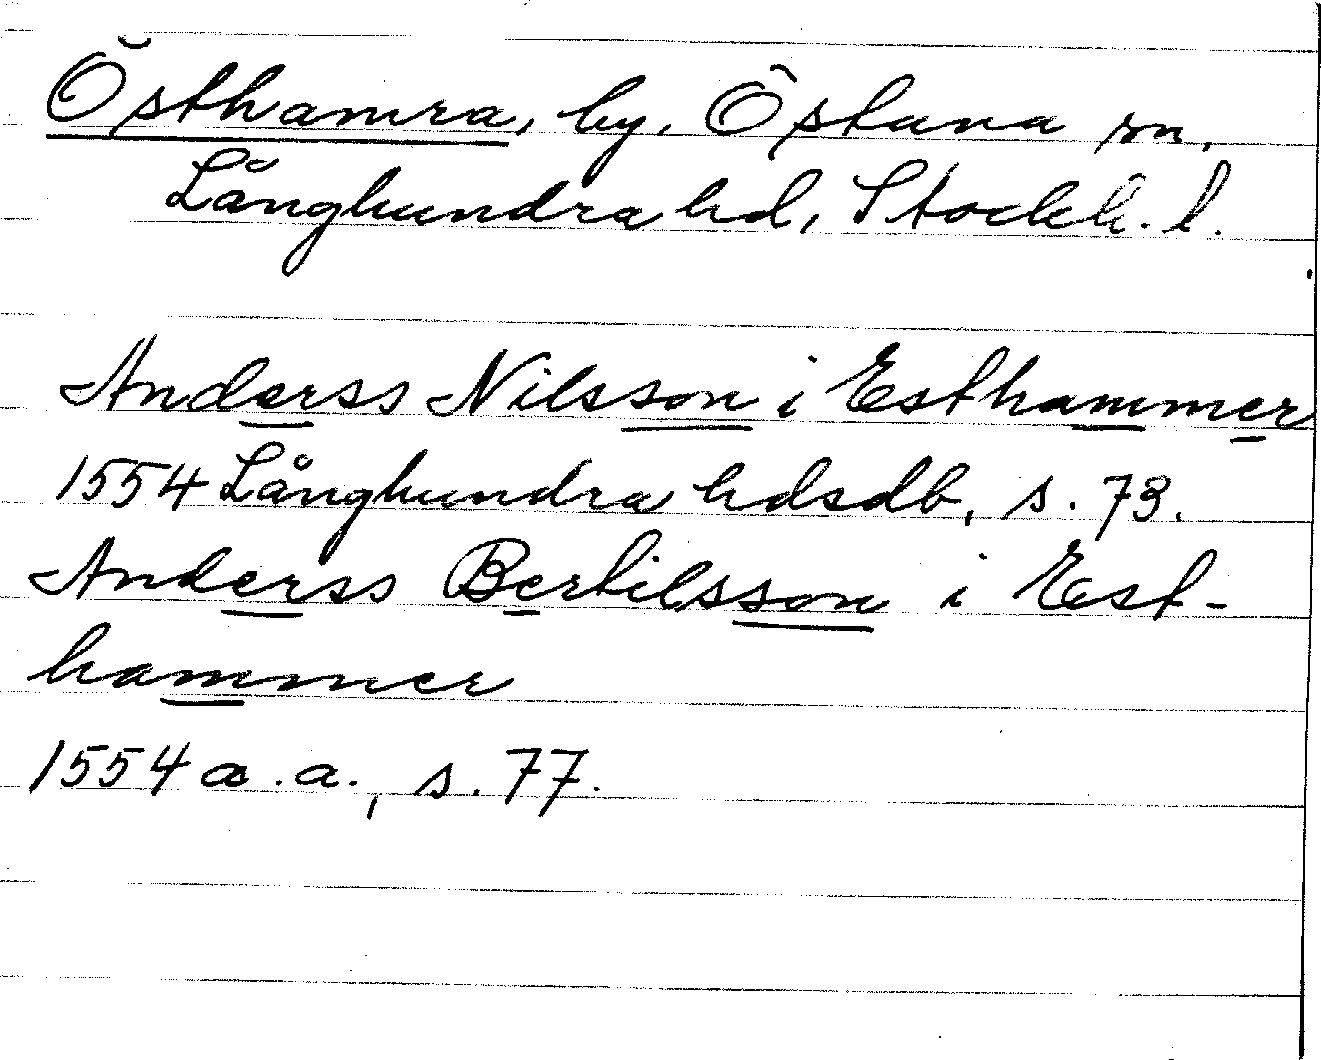 Östhamra, by, Östuna sn,
Långhundra hd, Stockh. l.
Anderss Nilsson i Esthammer
1554 Långhundra hdsdb, s. 73.
Anderss Bertilsson i Est-
hammer
1554 a. a., s. 77.